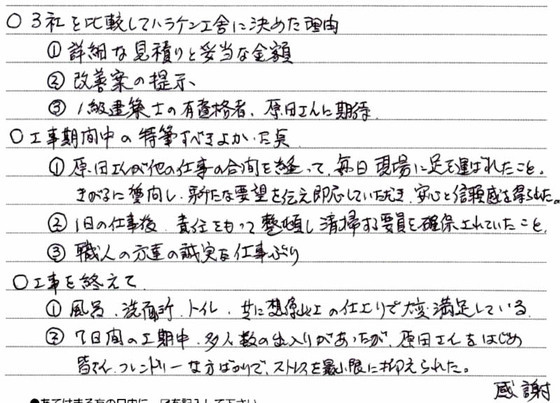 ○ 3社を比較してハラケン工舎に決めた理由
① 詳細な見積りと妥当な金額
② 改善案の提示
③ 1級建築士の有資格者、原田さんに期待
○ 工事期間中の特筆すべきよかった点
① 原田さんが他の仕事の合間を縫って、毎日現場に足を運ばれたこと。
きがるに質問し、新たな要望を伝え即応していただき、安心と信頼感を得られた。
② 1日の仕事後、責任をもって整頓し清掃する要員を確保されていたこと。
③ 職人の方達の誠実な仕事ぶり
○ 工事を終えて
① 風呂、洗面所、トイレ、共に想像以上の仕上りで大変満足している。
② 7日間の工期中、多人数の出入りがあったが、原田さんをはじめ
皆さん、フレンドリーな方ばかりで、ストレスを最小限に抑えられた。
感謝